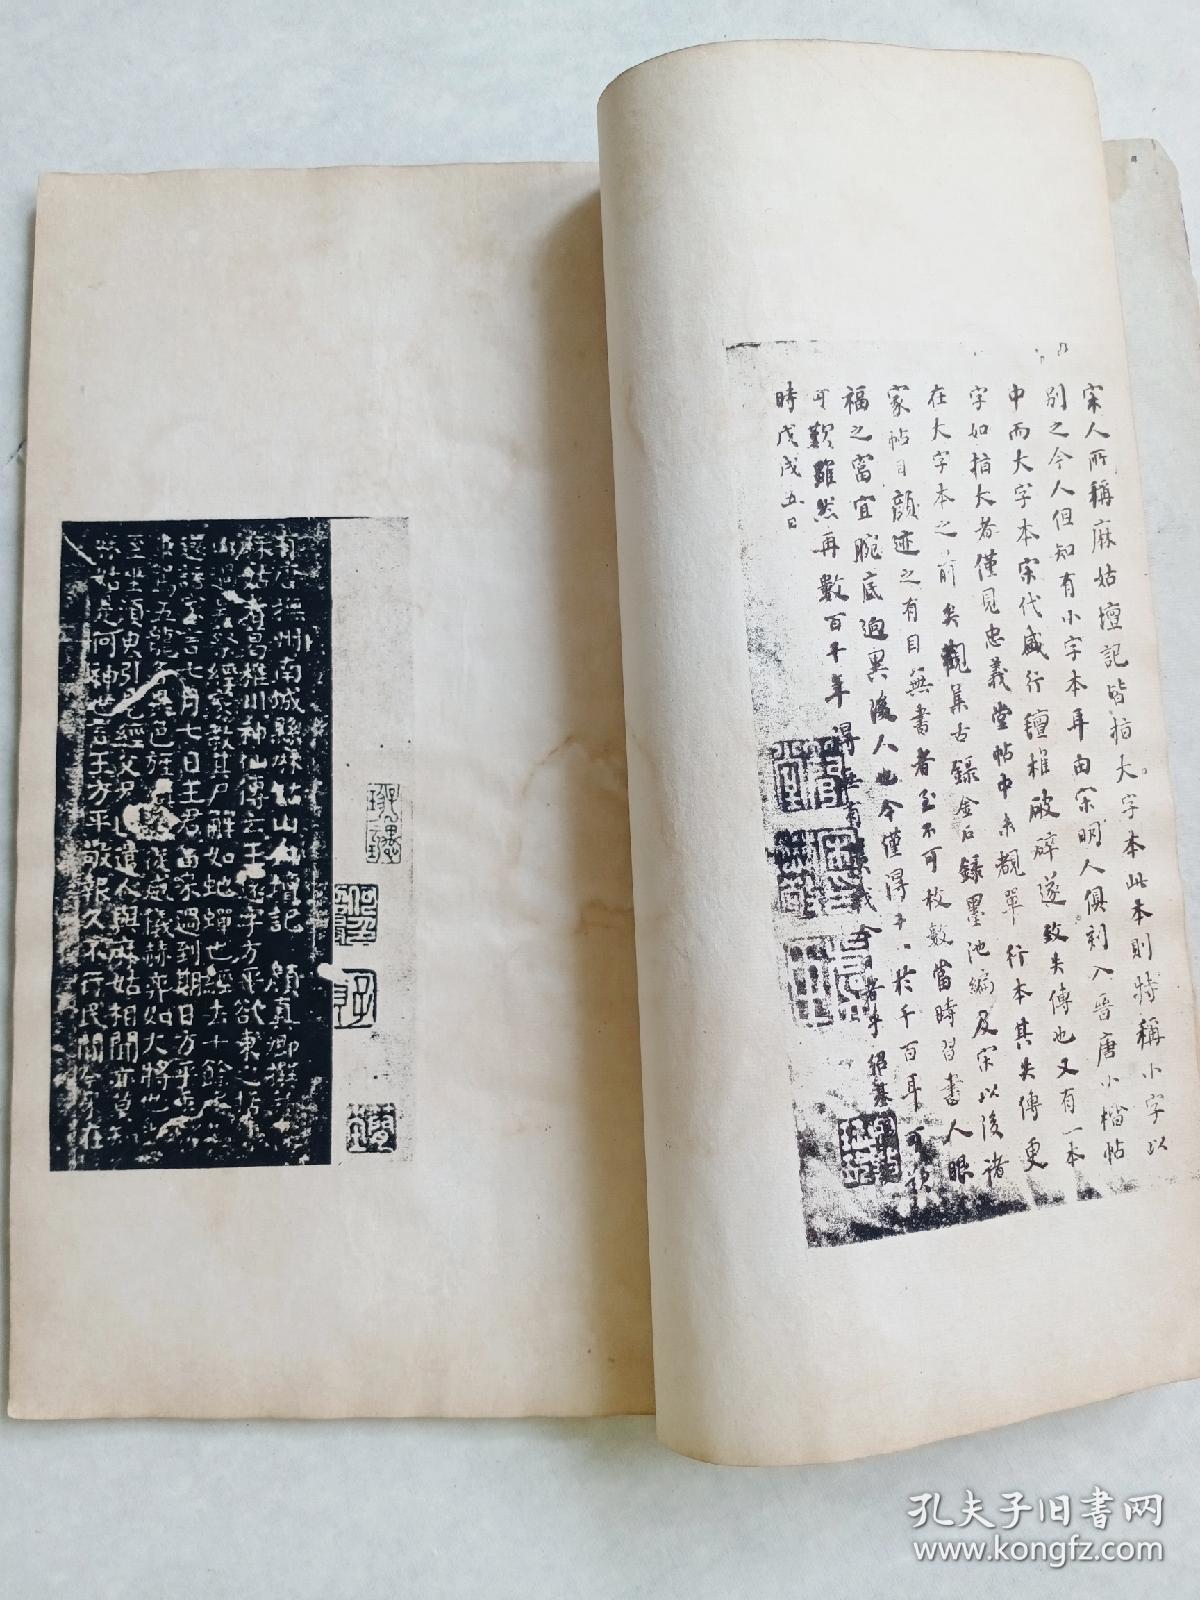 宋人所稱麻姑壇記皆指大字本此本則特稱小字以
別之今人但知有小字本耳由宋明人俱刻入晉唐小楷帖
中而大字本宋代盛行壇椎破碎遂致失傳也又有一本
字如指大者僅見忠義堂帖中未覩單行本其失傳更
在大字本之前矣觀集古錄金石錄墨池編及宋以後諸
家帖目顏迹之有目無書者至不可枚數當時習書人眼
福之富宜腕底迥異後人也今僅得於千百耳可
可歎雖然再數百千年得無有今者乎紹基
時戊戌五日
有唐撫州南城縣麻姑山仙壇記 顏真卿撰
麻姑者葛稚川神仙傳云王遠字方平欲東之括
山過蔡經家教其尸解如蛇蟬也經去十餘年
還語家言七月七日王君當家過到期日方平
五龍異色旌儀赫弈如大將也
至坐須臾引見經父兄遣人與麻姑相聞亦莫知
麻姑是何神也言王方平敬報久不行民間今家在
孔夫子旧书网
www.kongfz.com